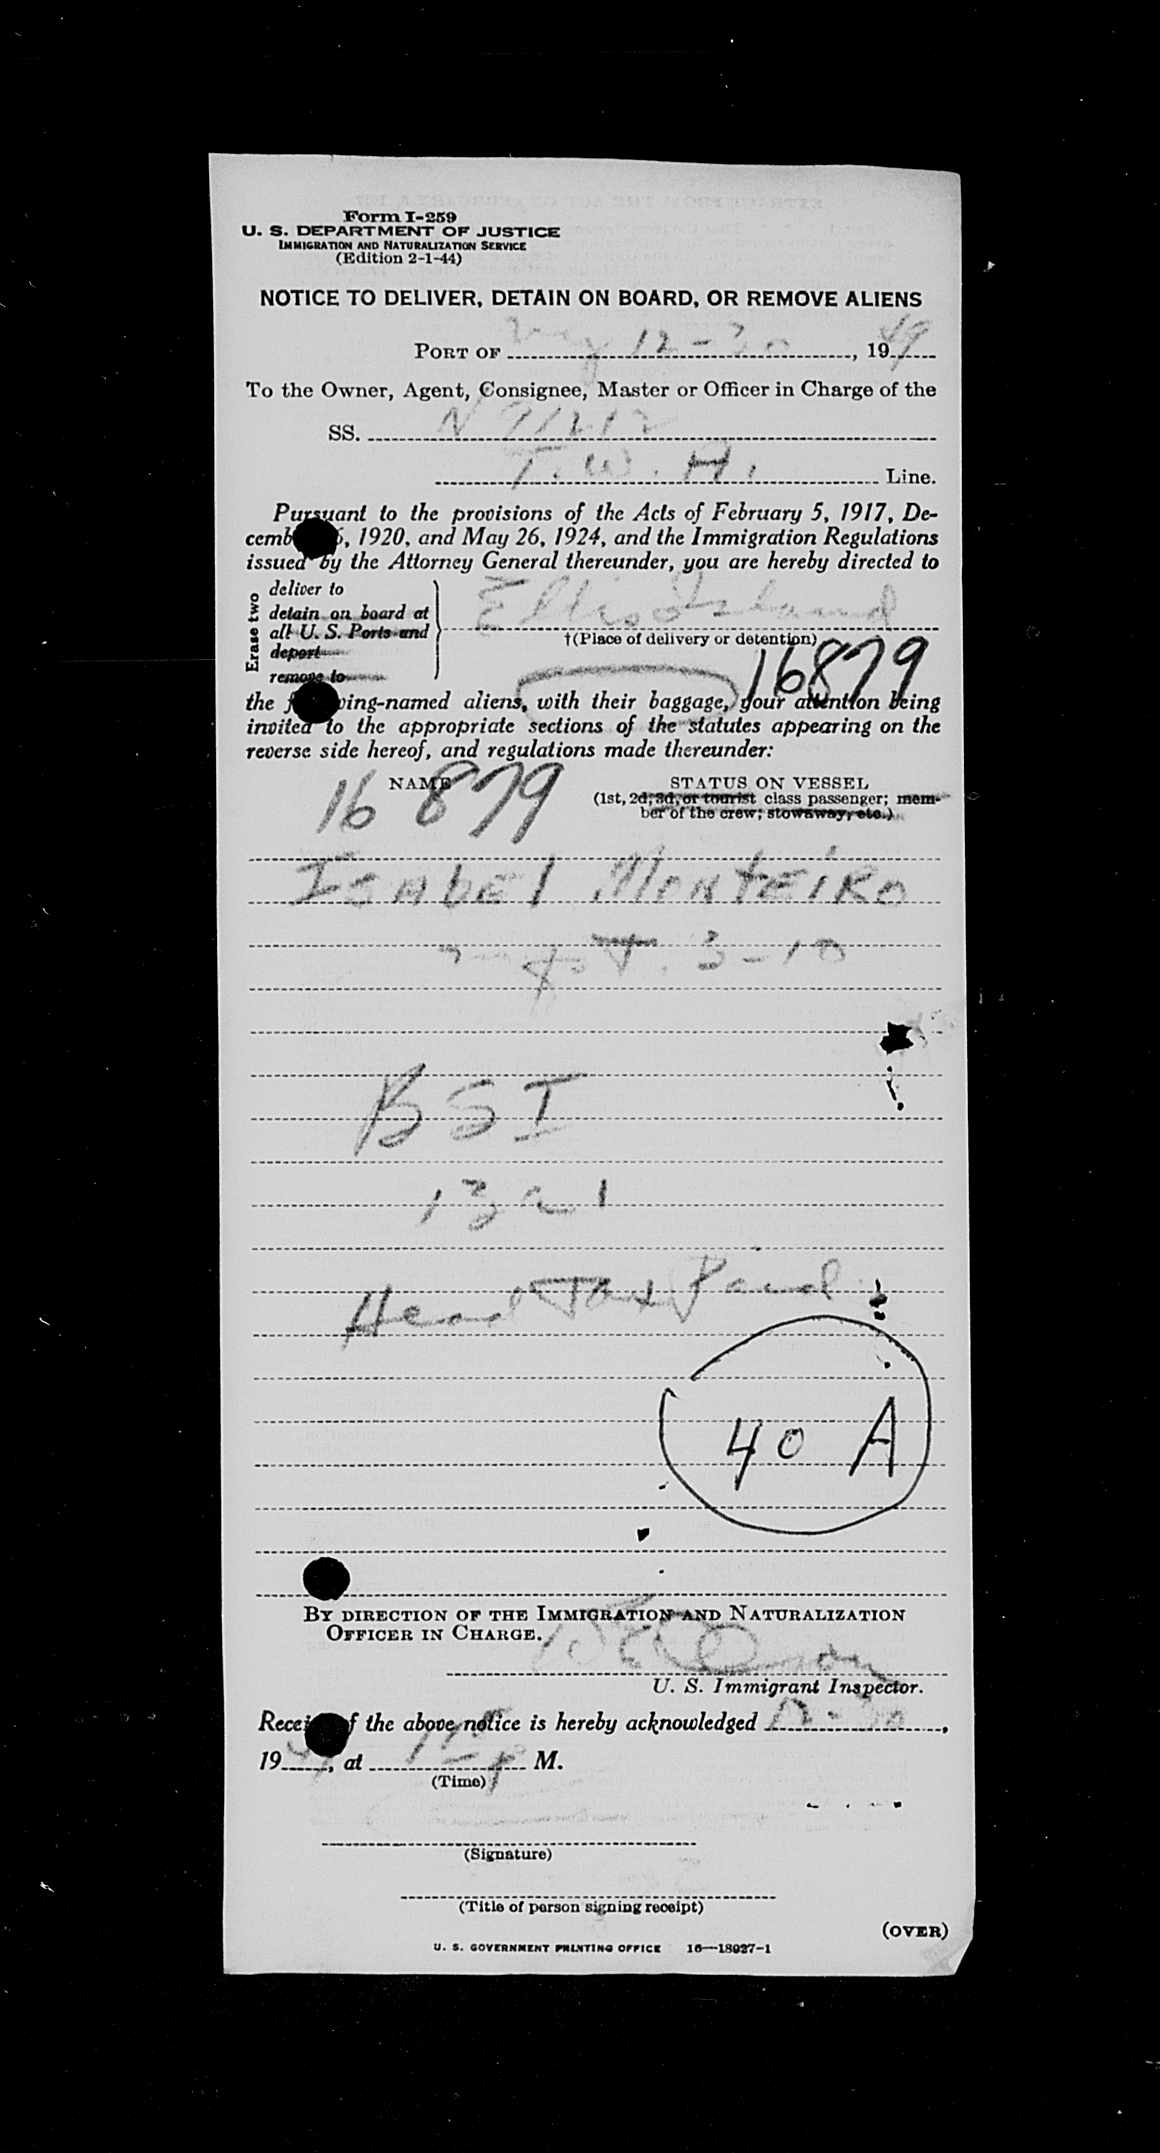 Form I-259
U. S. DEPARTMENT OF JUSTICE
IMMIGRATION AND NATURALIZATION SERVICE
(Edition 2-1-44)
NOTICE TO DELIVER, DETAIN ON BOARD, OR REMOVE ALIENS
PORT OF 12-30, 1949
To the Owner, Agent, Consignee, Master or Officer in Charge of the
SS. N 91212
T. W. A. Line.
Pursuant to the provisions of the Acts of February 5, 1917, De-
cemb 6, 1920, and May 26, 1924, and the Immigration Regulations
issued by the Attorney General thereunder, you are hereby directed to
Erase two
deliver to
detain on board at
all U. S. Ports and
deport
remove to
Ellis Island
†(Place of delivery or detention)
16879
the f wing-named aliens, with their baggage, your attention being
invited to the appropriate sections of the statutes appearing on the
reverse side hereof, and regulations made thereunder:
NAME
STATUS ON VESSEL
(1st, 2d, 3d, or tourist class passenger; mem-
ber of the crew; stowaway, etc.)
16 879
ISABEL MONTEIRO
3-10
BSI
1321
Head Tax Paid
40 A
BY DIRECTION OF THE IMMIGRATION AND NATURALIZATION
OFFICER IN CHARGE.
U. S. Immigrant Inspector.
Recei f the above notice is hereby acknowledged 12-30,
19 , at M.
(Time)
(Signature)
(Title of person signing receipt)
(OVER)
U. S. GOVERNMENT PRINTING OFFICE 16—18027-1